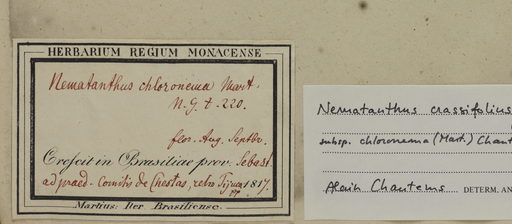 HERBARIUM REGIUM MONACENSE
Nematanthus chloronema Mart.
N. G. t. 220.
flor. Aug. Septbr.
Crescit in Brasiliae prov. Sebast.
ad praed. Comitis de 1817.
Martius: Iter Brasiliense.
Nematanthus crassifolius
subsp. chloronema (Mart.) Chaut
Alain Chautems DETERM. AN